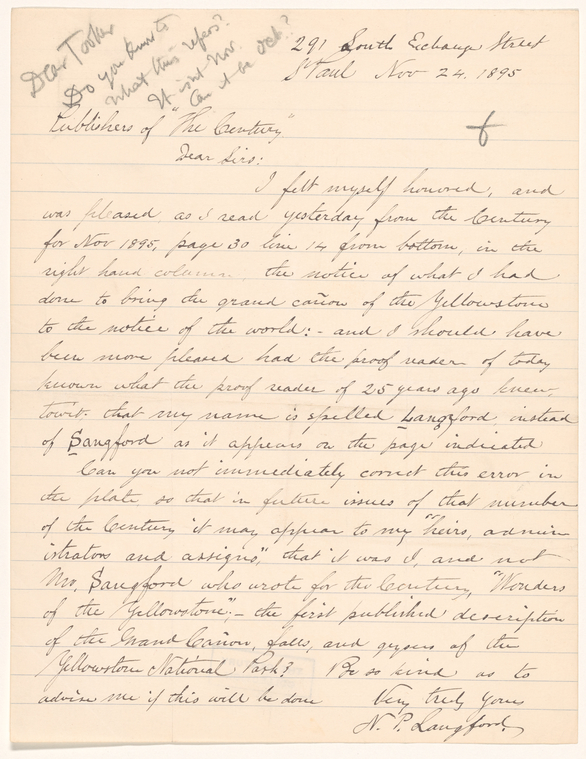 Dear Tooker
Do you know to
what this refers?
It isnt Nov.
Can it be Oct?
291 South Exchange Street
St Paul Nov 24. 1895
Publishers of "The Century"
Dear Sirs:
I felt myself honored, and
was pleased, as I read yesterday from the Century
for Nov 1895, page 30 line 14 from bottom, in the
right hand column, the notice of what I had
done to bring the grand cañon of the Yellowstone
to the notice of the world:- and I should have
been more pleased had the proof reader of today
known what the proof reader of 25 years ago knew,
towit: that my name is spelled Langford instead
of Sangford as it appears on the page indicated
Can you not immediately correct this error in
the plate so that in future issues of that number
of the Century it may appear to my "heirs, admin
istrators and assigns," that it was I, and not
Mr. Sangford who wrote for the Century, "Wonders
of the Yellowstone";- the first published description
of the Grand Cañon, falls, and geysers of the
Yellowstone National Park? Be so kind as to
advise me if this will be done Very truly yours
N. P. Langford.